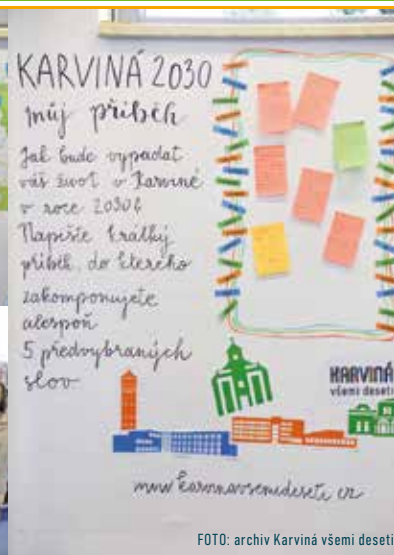 KARVINÁ 2030
můj příběh
Jak bude vypadat
váš život v Karviné
v roce 2030?
Napište krátký
příběh, do kterého
zakomponujete
alespoň
5 předvybraných
slov
KARVINÁ
všemi deseti
www.karvinavsemideseti.cz
FOTO: archiv Karviná všemi deseti